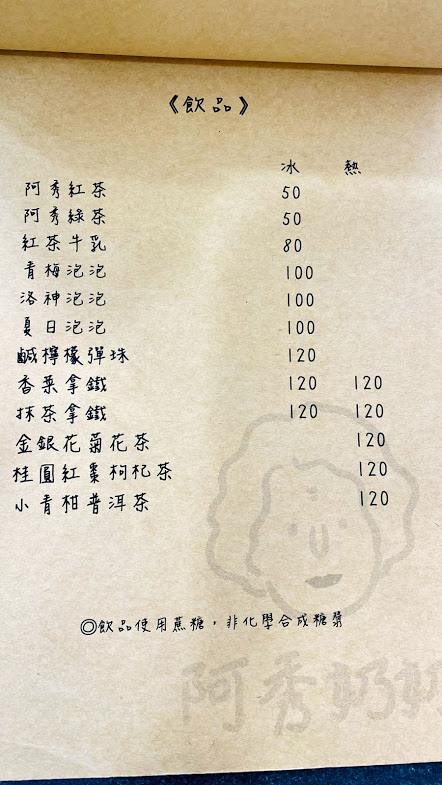 《飲品》
冰 熱
阿秀紅茶 50
阿秀綠茶 50
紅茶牛乳 80
青梅泡泡 100
洛神泡泡 100
夏日泡泡 100
鹹檸檬彈珠 120
香菜拿鐵 120 120
抹茶拿鐵 120 120
金銀花菊花茶 120
桂圓紅棗枸杞茶 120
小青柑普洱茶 120
◎飲品使用蔗糖,非化學合成糖漿
阿秀奶奶